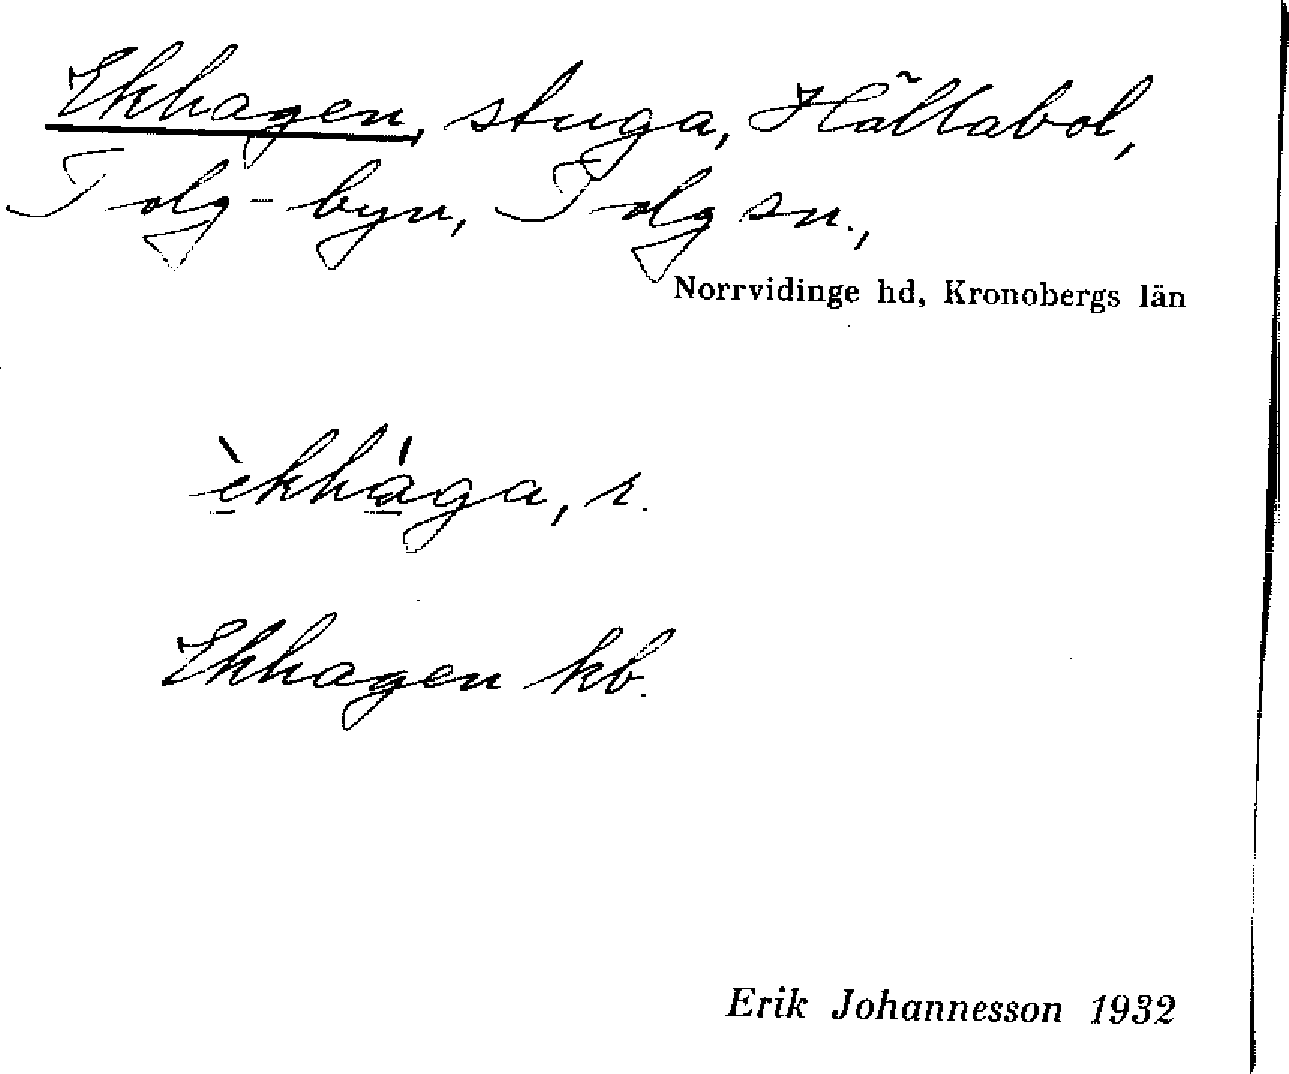 Ekhagen, stuga, Hållabol,
Tolg-byn, Tolg sn.,
Norrvidinge hd, Kronobergs län
èkhága, r.
Ekhagen kb.
Erik Johannesson 1932